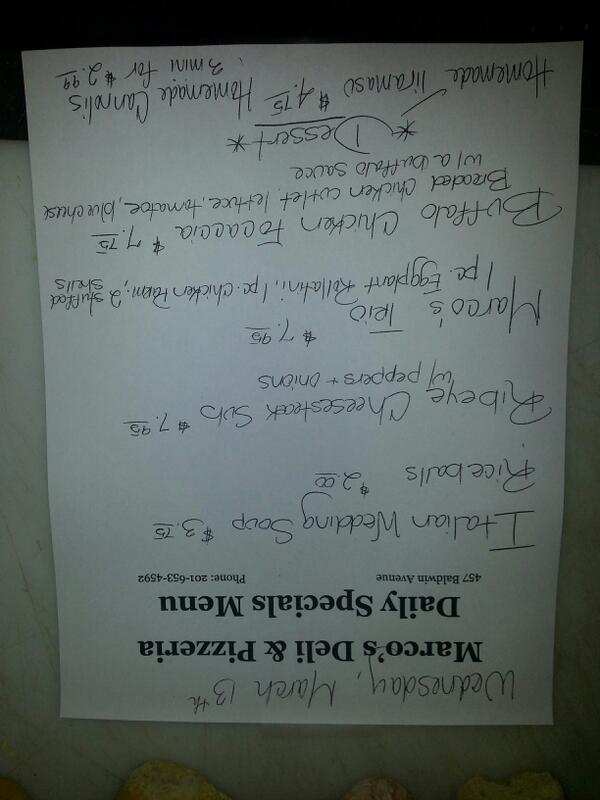 Wednesday, March 13th
Marco's Deli & Pizzeria
Daily Specials Menu
457 Baldwin Avenue Phone: 201-653-4592
Italian Wedding Soup $3.75
Rice balls $2.00
Ribeye Cheesesteak Sub $7.95
w/ peppers + onions
Marco's Trio $7.95
1 pc. Eggplant Rollatini, 1 pc. Chicken Parm, 2 stuffed shells
Buffalo Chicken Focaccia $7.75
Breaded chicken cutlet, lettuce, tomatoe, blue cheese
w/ a buffalo sauce
* Dessert *
Homemade Tiramasu $4.75 Homemade Cannolis
3 mini for $2.99